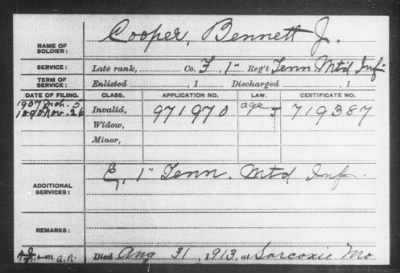 NAME OF SOLDIER: Cooper, Bennett J.
SERVICE: Late rank, Co. F, 1" Reg't Tenn Mt'd Inf.
TERM OF SERVICE: Enlisted , 1 Discharged , 1
DATE OF FILING. CLASS. APPLICATION NO. LAW. CERTIFICATE NO.
1890 Nov. 26 Invalid, 971970 719387
Widow,
Minor,
ADDITIONAL SERVICES: E, 1" Tenn. Mtd Inf.
REMARKS:
Died Aug 31, 1913, at Sarcoxie Mo